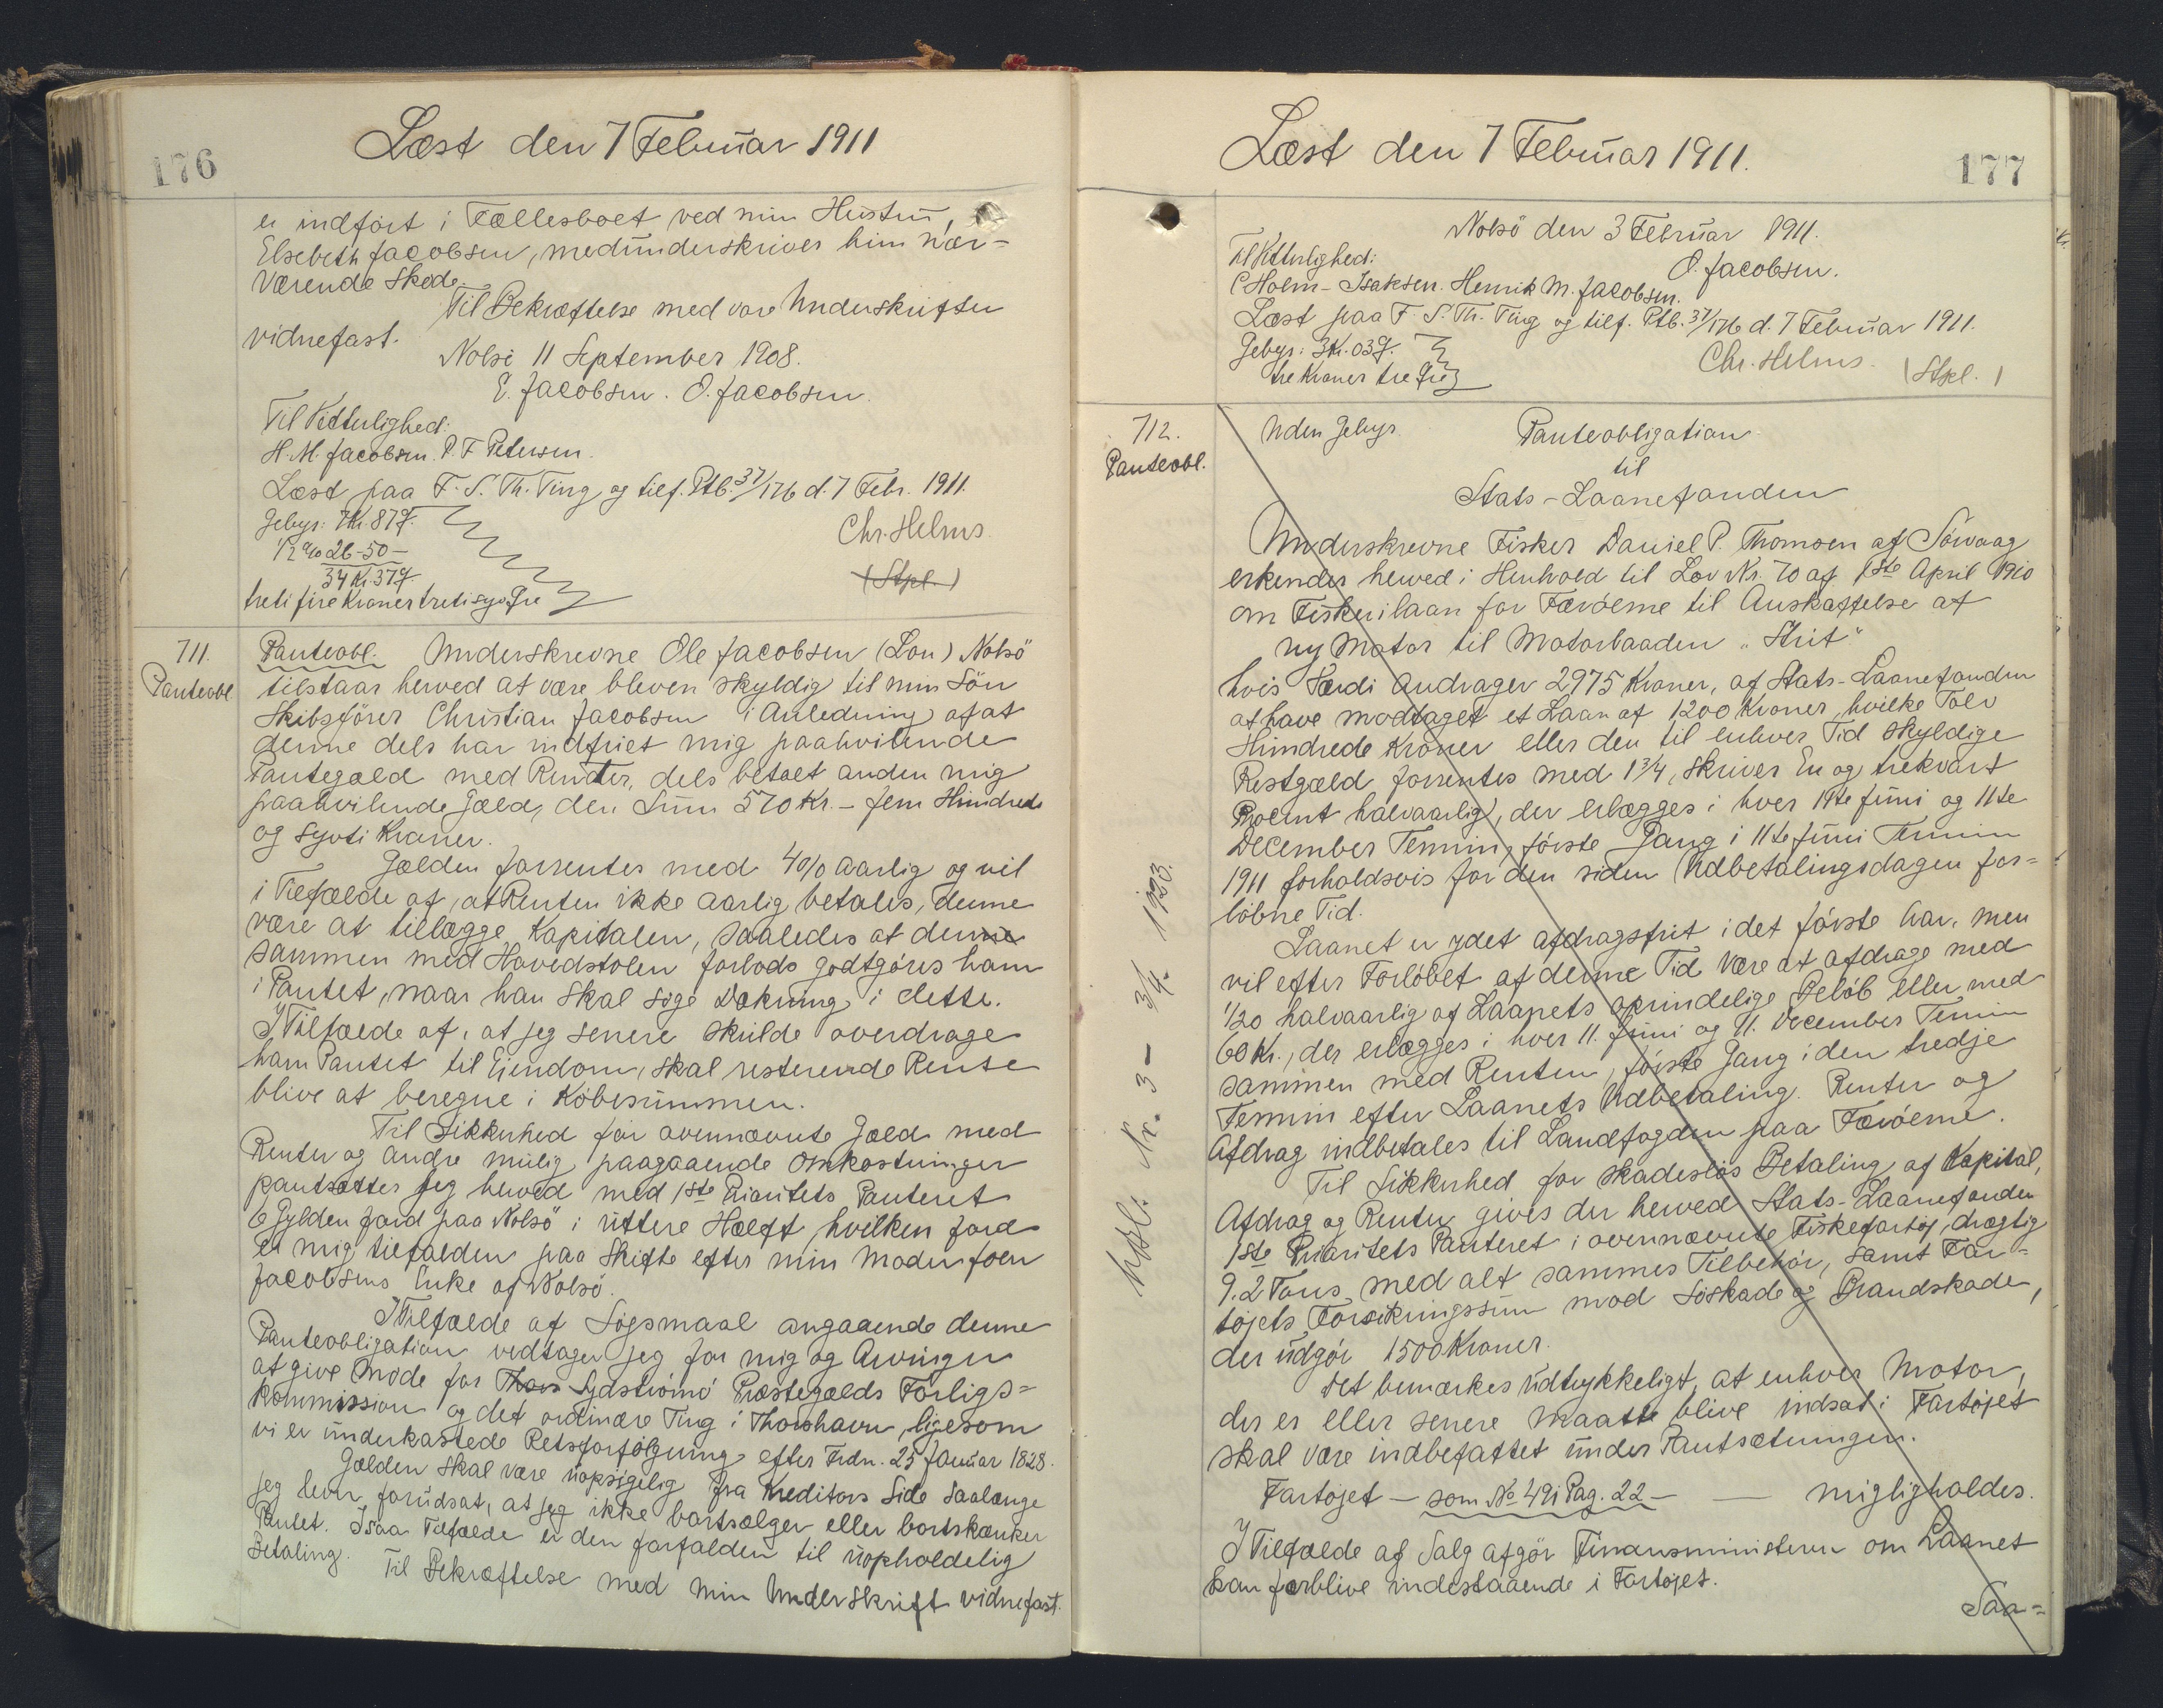 176
Læst den 7 Februar 1911
er indført i Fællesboet ved min Hustru,
Elsebeth Jacobsen, medunderskriver him nær-
værende Skøde.
Til Bekræftelse med vore Underskrifter
vidnefast.
Nolsö 11 September 1908.
E. Jacobsen. O. Jacobsen.
Til Vitterlighed:
H. M. Jacobsen. P. F. Petersen.
Læst paa F. S. Th. Ting og tilf. Ptb. 37/176 d. 7 Febr. 1911.
Gebyr: 7 Kr. 87 Ø.
1/2 % 26-50-
34 Kr. 37 Ø.
treti fire Kroner treti syv Øre
Chr. Helms.
(Stpl.)
711.
Panteobl.
Panteobl. Underskrevne Ole Jacobsen (Lon) Nolsö
tilstaar herved at være bleven skyldig til min Sön
Skibsförer Christian Jacobsen i Anledning af at
denne dels har indfriet mig paahvilende
Pantegæld med Renter, dels betalt anden mig
paahvilende Gæld, den Sum 570 Kr. - fem Hundrede
og syvti Kroner.
Gælden forrentes med 4% aarlig og vil
i Tilfælde af, at Renten ikke aarlig betales, denne
være at tillægge Kapitalen, saaledes at denne
sammen med Hovedstolen forlods godtgöres ham
i Pantet, naar han skal söge Dækning i dette.
I Tilfælde af, at jeg senere skulde overdrage
ham Pantet til Eiendom, skal resterende Rente
blive at beregne i Köbesummen.
Til Sikkerhed for ovennævnte Gæld med
Renter og andre mulig paagaaende Omkostninger
pantsætter jeg herved med 1ste Prioritets Panteret
6 Gylden Jord paa Nolsö i uttere Hælft, hvilken Jord
er mig tilfalden paa Skifte efter min Moder Joen
Jacobsens Enke af Nolsö.
I Tilfælde af Sögsmaal angaaende denne
Panteobligation vedtager jeg for mig og Arvinger
at give Möde for Thors Sydströmö Præstegælds Forligs-
kommission og det ordinære Ting i Thorshavn, ligesom
vi er underkastede Retsforfölgning efter Frdn. 25 Januar 1828.
Gælden skal være uopsigelig fra Kreditors Side saalænge
jeg lever, forudsat, at jeg ikke bortsælger eller bortskænker
Pantet. I saa Tilfælde er den forfalden til uopholdelig
Betaling.
Til Bekræftelse med min Underskrift vidnefast.
177
Læst den 7 Februar 1911.
Nolsö den 3 Februar 1911.
O. Jacobsen.
Til Vitterlighed:
C Holm-Isaksen. Henrik M. Jacobsen.
Læst paa F. S. Th. Ting og tilf. Ptb. 37/176 d. 7 Februar 1911.
Gebyr: 3 Kr. 03 Ø.
tre Kroner tre Øre
Chr. Helms.
(Stpl.)
712.
Panteobl.
Uden Gebyr.
Panteobligation
til
Stats-Laanefonden
Underskrevne Fisker Daniel P. Thomsen af Sörvaag
erkender herved i Henhold til Lov Nr. 70 af 1ste April 1910
om Fiskerilaan for Færöerne til Anskaffelse af
ny Motor til Motorbaaden "Strit"
hvis Værdi andrager 2975 Kroner, af Stats-Laanefonden
at have modtaget et Laan af 1200 Kroner, hvilke Tolv
Hundrede Kroner eller den til enhver Tid skyldige
Restgæld forrentes med 1 3/4, skriver En og trekvart
Procent halvaarlig, der erlægges i hver 11te Juni og 11te
December Termin, förste Gang i 11te Juni Termin
1911 forholdsvis for den siden Udbetalingsdagen for-
löbne Tid.
Laanet er ydet afdragsfrit i det förste Aar, men
vil efter Forlöbet af denne Tid være at afdrage med
1/20 halvaarlig af Laanets oprindelige Belöb eller med
60 Kr., der erlægges i hver 11. Juni og 11. December Termin
sammen med Renten, förste Gang i den tredje
Termin efter Laanets Udbetaling. Renter og
Afdrag indbetales til Landfogden paa Færöerne.
Til Sikkerhed for skadeslös Betaling af Kapital,
Afdrag og Renter gives der herved Stats-Laanefonden
1ste Prioritets Panteret i ovennævnte Fiskefartöj, drægtig
9.2 Tons, med alt sammes Tilbehör, samt Far-
töjets Forsikringssum mod Söskade og Brandskade,
der udgör 1500 Kroner.
Det bemærkes udtrykkeligt, at enhver Motor,
der er eller senere maatte blive indsat i Fartöjet
skal være indbefattet under Pantsætningen.
Fartöjet - som No 49 i Pag. 22 - - migligholdes.
I Tilfælde af Salg afgör Finansministeren om Laanet
kan forblive indestaaende i Fartöjet.
Saa-
Nr. 3 - 3/4. 1923.